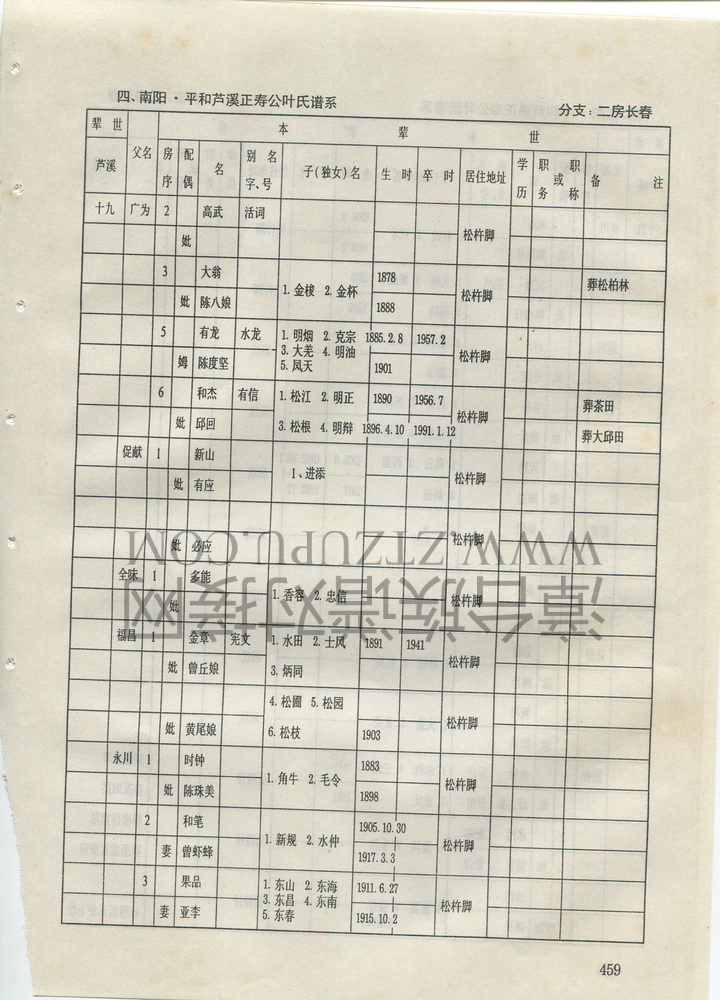 四、南阳·平和芦溪正寿公叶氏谱系 分支：二房长春
辈世 本 辈 世
芦溪 父名 房序 配偶 名 别名字、号 子(独女)名 生时 卒时 居住地址 学历 职务或职称 备注
十九 广为 2 高武 活词 松杵脚
妣
3 大翁 1.金梭 2.金杯 1878 松杵脚 葬松柏林
妣 陈八娘 1888
5 有龙 水龙 1.明烟 2.克宗 1885.2.8 1957.2 松杵脚
3.大羌 4.明油
姆 陈度坚 5.凤天 1901
6 和杰 有信 1.松江 2.明正 1890 1956.7 松杵脚 葬茶田
妣 邱回 3.松根 4.明辩 1896.4.10 1991.1.12 葬大邱田
促献 1 新山 1、进添 松杵脚
妣 有应
妣 必应 松杵脚
全味 1 多能 1.香容 2.忠信 松杵脚
妣
福昌 1 金章 宪文 1.水田 2.士风 1891 1941 松杵脚
妣 曾丘娘 3.炳同
4.松圃 5.松园 松杵脚
妣 黄尾娘 6.松枝 1903
永川 1 时钟 1.角牛 2.毛令 1883 松杵脚
妣 陈珠美 1898
2 和笔 1.新规 2.水仲 1905.10.30 松杵脚
妻 曾虾蜂 1917.3.3
3 果品 1.东山 2.东海 1911.6.27 松杵脚
3.东昌 4.东南
妻 亚李 5.东春 1915.10.2
459
WWW.ZTZUPU.COM
漳台族谱对接网